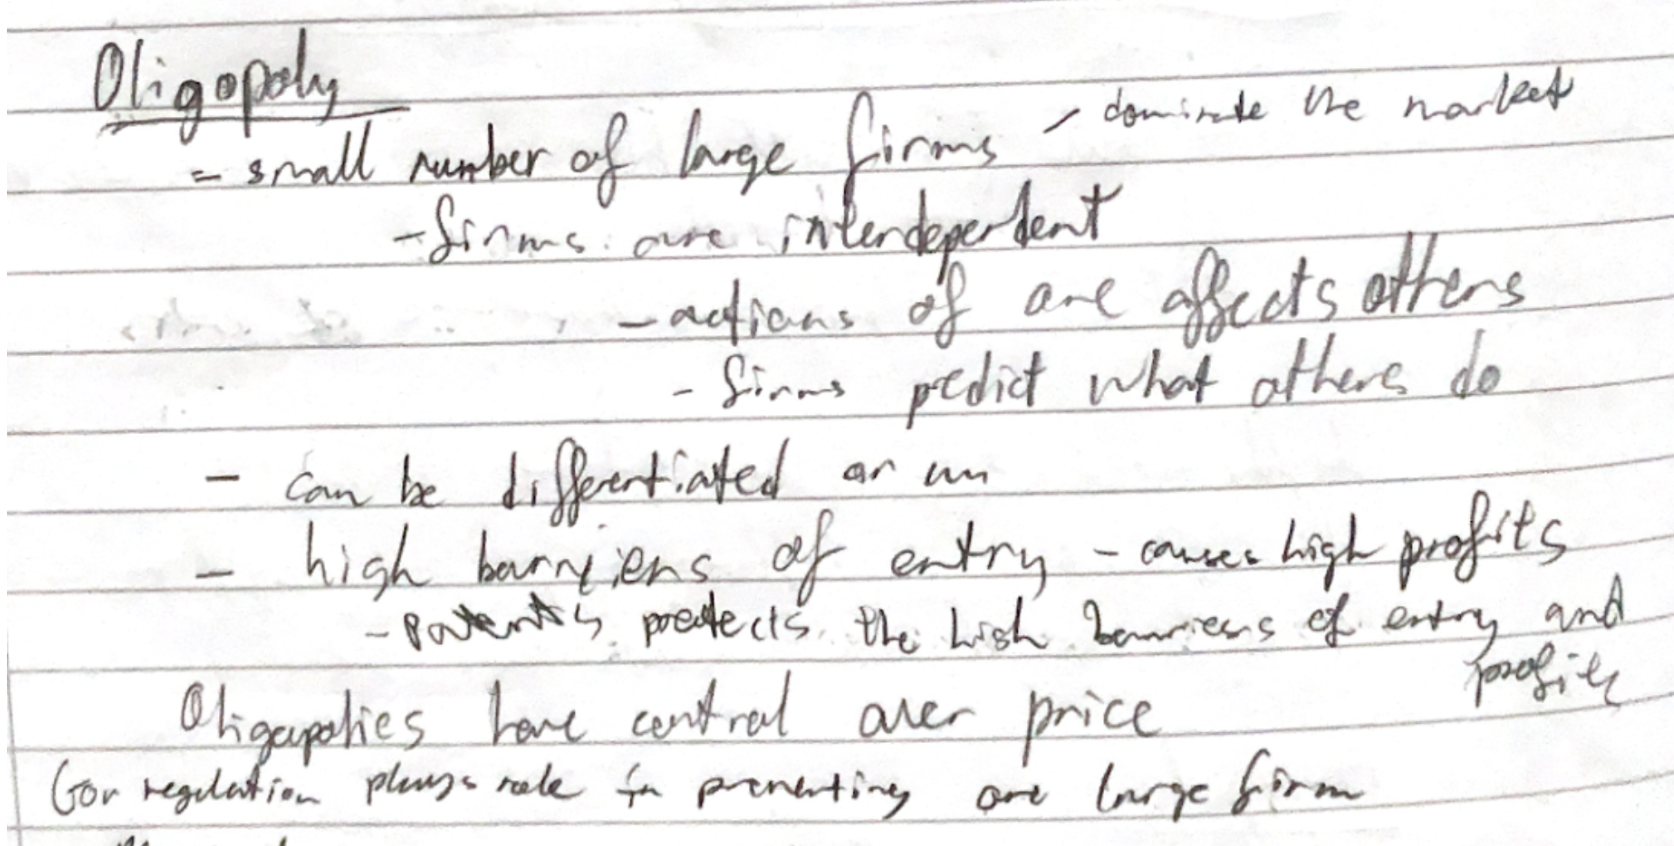 Oligopoly
- small number of large firms, dominate the market
- firms are interdependent
- actions of one affects others
- firms predict what others do
- can be differentiated or un
- high barriers of entry - causes high profits
- patents protects the high barriers of entry and
profits
Oligopolies have control over price
Gov regulation plays role in preventing one large firm